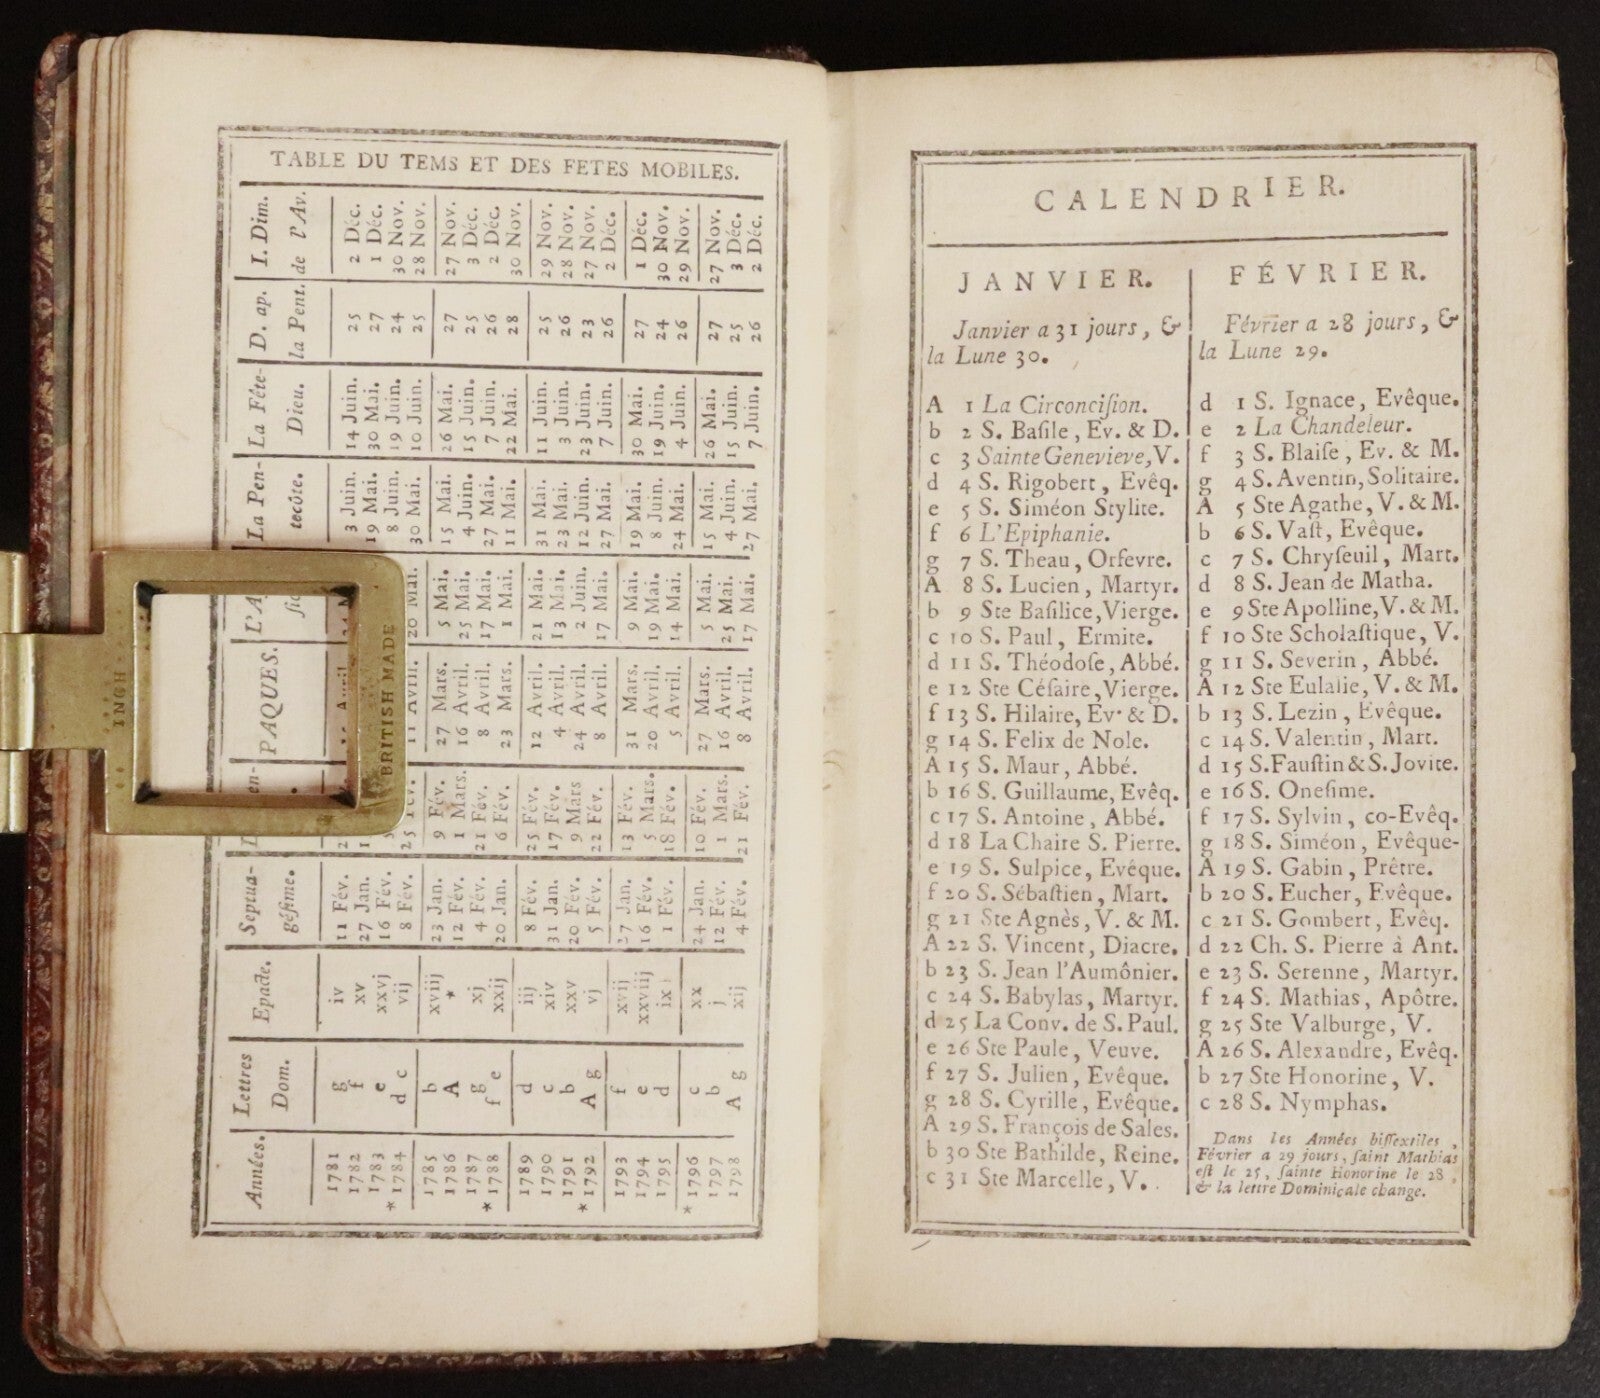 TABLE DU TEMS ET DES FETES MOBILES.
Années. Lettres Dom. Epacte. Septuagésime. PAQUES. La Pentecôte. La Fête-Dieu. D. ap. la Pent. I. Dim. de l'Av.
1781 g iv 11 Fév. 3 Juin. 14 Juin. 25 2 Déc.
1782 f xv 27 Jan. 19 Mai. 30 Mai. 27 1 Déc.
1783 e xxvj 16 Fév. 8 Juin. 19 Juin. 24 30 Nov.
* 1784 d c vij 8 Fév. 25 Fév. 11 Avril. 20 Mai. 30 Mai. 10 Juin. 25 28 Nov.
1785 b xviij 23 Jan. 9 Fév. 27 Mars. 5 Mai. 15 Mai. 26 Mai. 27 27 Nov.
1786 A * 12 Fév. 1 Mars. 16 Avril. 25 Mai. 4 Juin. 15 Juin. 25 3 Déc.
1787 g xj 4 Fév. 21 Fév. 8 Avril. 17 Mai. 27 Mai. 7 Juin. 26 2 Déc.
* 1788 f e xxij 20 Jan. 6 Fév. 23 Mars. 1 Mai. 11 Mai. 22 Mai. 28 30 Nov.
1789 d iij 8 Fév. 25 Fév. 12 Avril. 21 Mai. 31 Mai. 11 Juin. 25 29 Nov.
1790 c xiv 31 Jan. 17 Fév. 4 Avril. 13 Mai. 23 Mai. 3 Juin. 26 28 Nov.
1791 b xxv 20 Fév. 9 Mars 24 Avril. 2 Juin. 12 Juin. 23 Juin. 23 27 Nov.
* 1792 A g vj 5 Fév. 22 Fév. 8 Avril. 17 Mai. 27 Mai. 7 Juin. 26 2 Déc.
1793 f xvij 27 Jan. 13 Fév. 31 Mars. 9 Mai. 19 Mai. 30 Mai. 27 1 Déc.
1794 e xxviij 16 Fév. 5 Mars. 20 Avril. 19 Mai. 8 Juin. 19 Juin. 24 30 Nov.
1795 d ix 1 Fév. 18 Fév. 5 Avril. 14 Mai. 24 Mai. 4 Juin. 26 29 Nov.
* 1796 c xx 24 Jan. 10 Fév. 27 Mars. 5 Mai. 15 Mai. 26 Mai. 27 27 Nov.
1797 b j 12 Fév. 1 Mars. 16 Avril. 25 Mai. 4 Juin. 15 Juin. 25 3 Déc.
1798 A g xij 4 Fév. 21 Fév. 8 Avril. 17 Mai. 27 Mai. 7 Juin. 26 2 Déc.
BRITISH MADE
CALENDRIER.
JANVIER.
Janvier a 31 jours, &
la Lune 30.
A 1 La Circoncision.
b 2 S. Basile, Ev. & D.
c 3 Sainte Genevieve, V.
d 4 S. Rigobert, Evêq.
e 5 S. Siméon Stylite.
f 6 L'Epiphanie.
g 7 S. Theau, Orfevre.
A 8 S. Lucien, Martyr.
b 9 Ste Basilice, Vierge.
c 10 S. Paul, Ermite.
d 11 S. Théodose, Abbé.
e 12 Ste Césaire, Vierge.
f 13 S. Hilaire, Ev. & D.
g 14 S. Felix de Nole.
A 15 S. Maur, Abbé.
b 16 S. Guillaume, Evêq.
c 17 S. Antoine, Abbé.
d 18 La Chaire S. Pierre.
e 19 S. Sulpice, Evêque.
f 20 S. Sébastien, Mart.
g 21 Ste Agnès, V. & M.
A 22 S. Vincent, Diacre.
b 23 S. Jean l'Aumônier.
c 24 S. Babylas, Martyr.
d 25 La Conv. de S. Paul.
e 26 Ste Paule, Veuve.
f 27 S. Julien, Evêque.
g 28 S. Cyrille, Evêque.
A 29 S. François de Sales.
b 30 Ste Bathilde, Reine.
c 31 Ste Marcelle, V.
FÉVRIER.
Février a 28 jours, &
la Lune 29.
d 1 S. Ignace, Evêque.
e 2 La Chandeleur.
f 3 S. Blaise, Ev. & M.
g 4 S. Aventin, Solitaire.
A 5 Ste Agathe, V. & M.
b 6 S. Vast, Evêque.
c 7 S. Chryseuil, Mart.
d 8 S. Jean de Matha.
e 9 Ste Apolline, V. & M.
f 10 Ste Scholastique, V.
g 11 S. Severin, Abbé.
A 12 Ste Eulalie, V. & M.
b 13 S. Lezin, Evêque.
c 14 S. Valentin, Mart.
d 15 S. Faustin & S. Jovite.
e 16 S. Onesime.
f 17 S. Sylvin, co-Evêq.
g 18 S. Siméon, Evêque-
A 19 S. Gabin, Prêtre.
b 20 S. Eucher, Evêque.
c 21 S. Gombert, Evêq.
d 22 Ch. S. Pierre à Ant.
e 23 S. Serenne, Martyr.
f 24 S. Mathias, Apôtre.
g 25 Ste Valburge, V.
A 26 S. Alexandre, Evêq.
b 27 Ste Honorine, V.
c 28 S. Nymphas.
Dans les Années bissextiles,
Février a 29 jours, saint Mathias
est le 25, sainte Honorine le 28,
& la lettre Dominicale change.